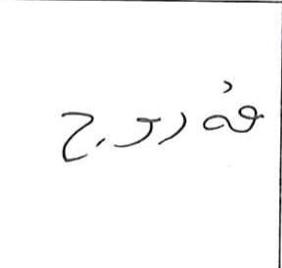 فەرەج